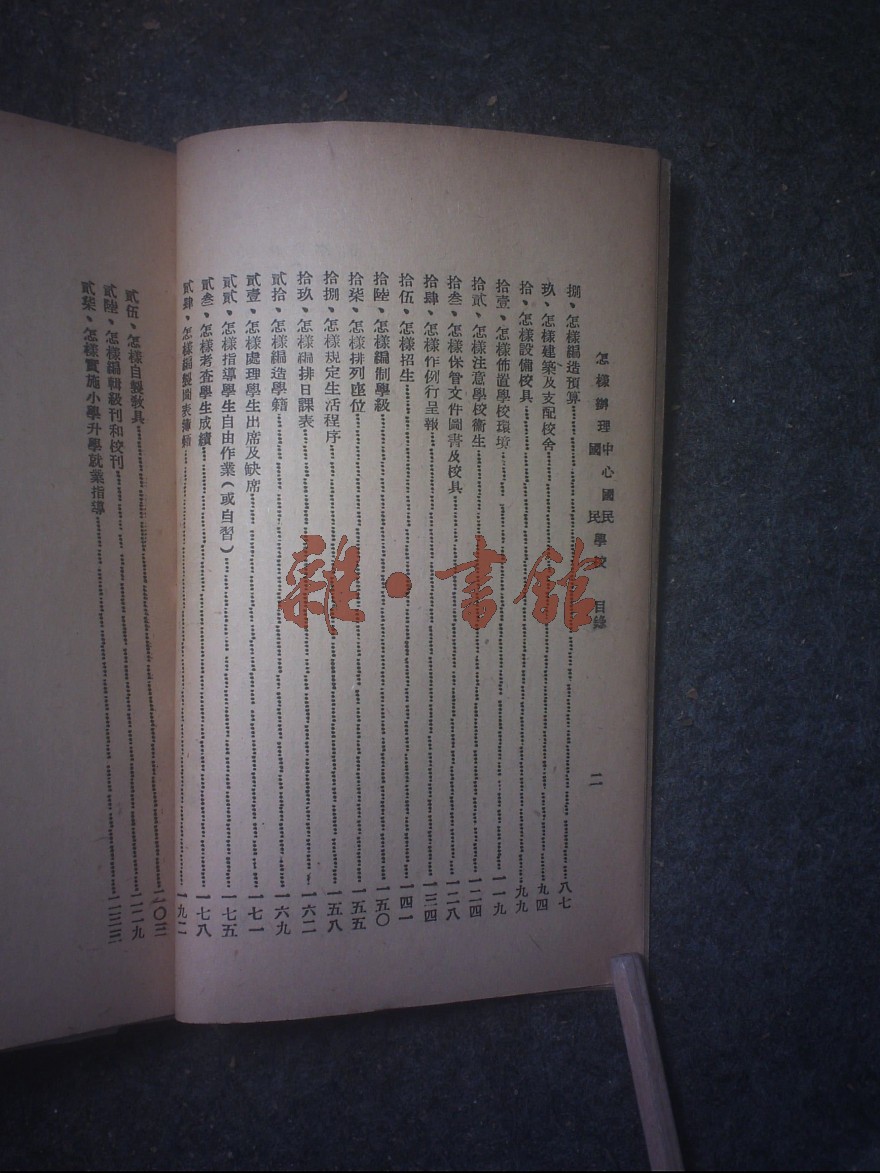 怎樣辦理中心國民國民學校 目錄 二
捌、怎樣編造預算……八七
玖、怎樣建築及支配校舍……九四
拾、怎樣設備校具……九九
拾壹、怎樣佈置學校環境……一一九
拾貳、怎樣注意學校衞生……一二四
拾叁、怎樣保管文件圖書及校具……一二八
拾肆、怎樣作例行呈報……一三四
拾伍、怎樣招生……一四一
拾陸、怎樣編制學級……一五〇
拾柒、怎樣排列座位……一五五
拾捌、怎樣規定生活程序……一五八
拾玖、怎樣編排日課表……一六二
貳拾、怎樣編造學籍……一六九
貳壹、怎樣處理學生出席及缺席……一七一
貳貳、怎樣指導學生自由作業(或自習)……一七五
貳叁、怎樣考查學生成績……一七八
貳肆、怎樣編製圖表簿籍……一九二
貳伍、怎樣自製敎具……二〇三
貳陸、怎樣編輯級刊和校刊……二二九
貳柒、怎樣實施小學升學就業指導……二三三
雜·書館